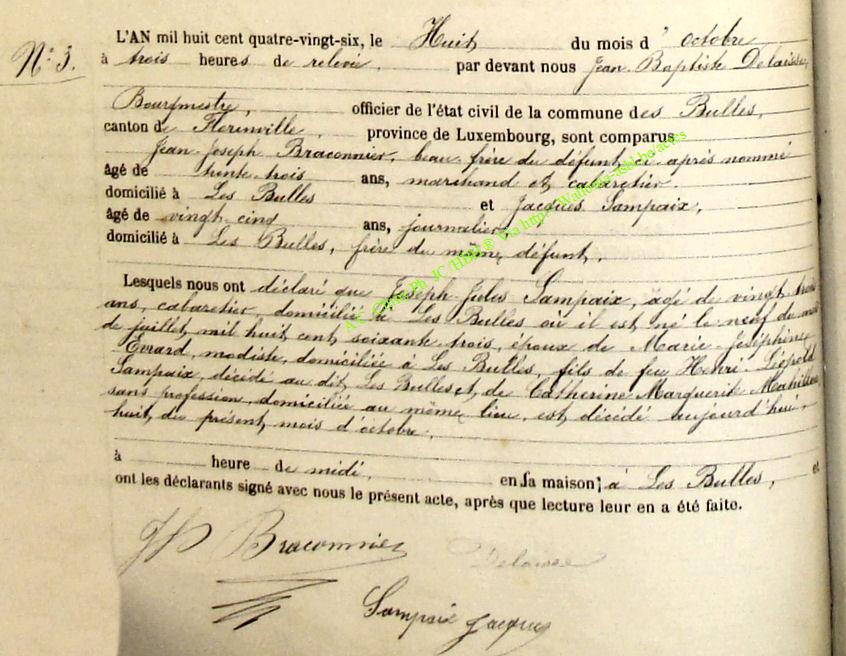 N° 3.
L'AN mil huit cent quatre-vingt-six, le Huit du mois d' octobre
à trois heures de relevée, par devant nous Jean Baptiste Delaisse,
Bourgmestre, officier de l'état civil de la commune des Bulles,
canton de Florenville, province de Luxembourg, sont comparus
Jean-Joseph Braconnier, beau-frère du défunt ci après nommé
âgé de trente trois ans, marchand et cabaretier,
domicilié à Les Bulles et Jacques Sampaix,
âgé de vingt-cinq ans, journalier
domicilié à Les Bulles, frère du même défunt.
Lesquels nous ont déclaré que Joseph-Jules Sampaix, âgé de vingt trois
ans, cabaretier, domicilié à Les Bulles où il est né le neuf du mois
de juillet mil huit cent soixante trois, époux de Marie-Joséphine
Evrard, modiste, domiciliée à Les Bulles, fils de feu Henri-Léopold
Sampaix, décédé au dit Les Bulles et de Catherine Marguerite
sans profession, domiciliée au même lieu, est décédé aujourd'hui,
huit du présent mois d'octobre.
à heure de midi, en sa maison, à Les Bulles, et
ont les déclarants signé avec nous le présent acte, après que lecture leur en a été faite.
JJ Braconnier
Delaisse
Sampaix Jacques